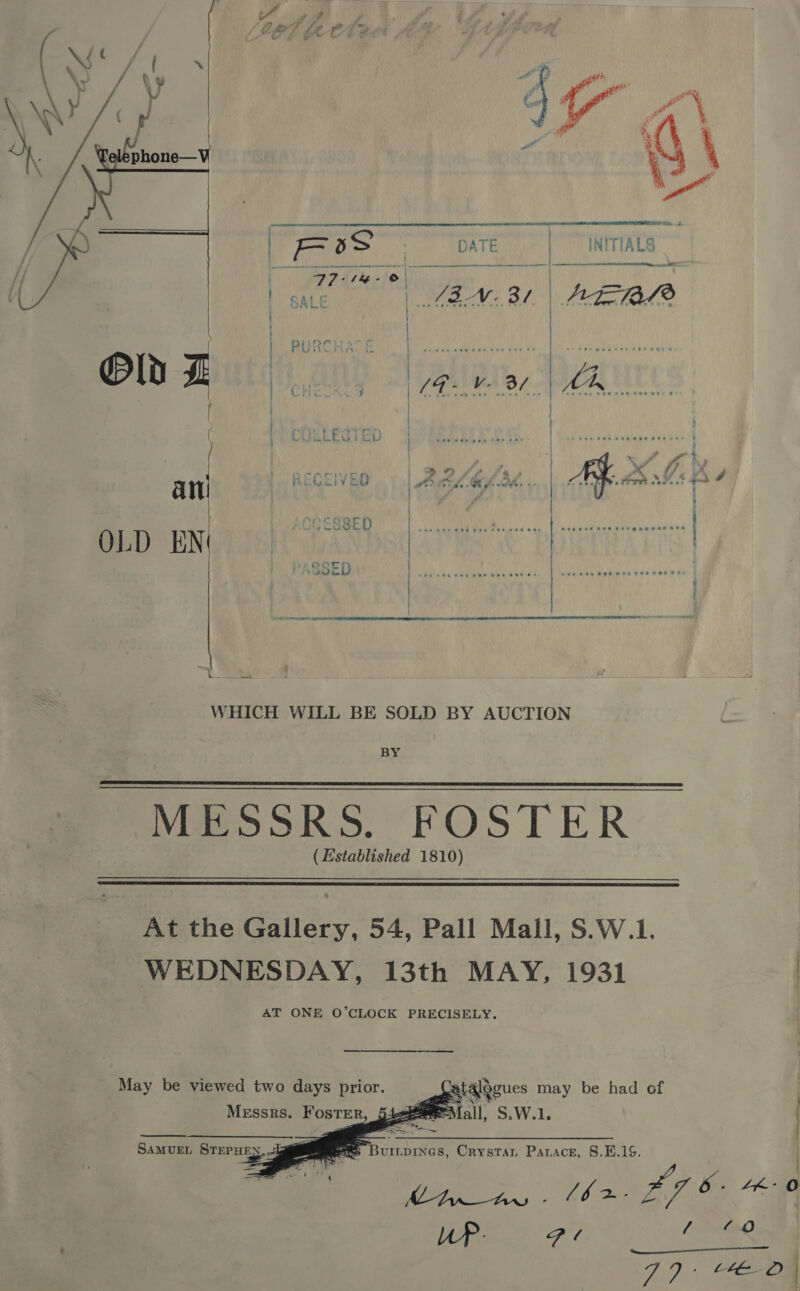 Collected by Gifford
Telephone—V
F5S DATE INITIALS
77-14-0
SALE 13.V.31
PURCHASE
Old
CHECKED 19. V. 31
COLLECTED
an
RECEIVED
OLD EN
ACCESSED
PASSED
WHICH WILL BE SOLD BY AUCTION
BY
MESSRS. FOSTER
(Established 1810)
At the Gallery, 54, Pall Mall, S.W.1.
WEDNESDAY, 13th MAY, 1931
AT ONE O'CLOCK PRECISELY.
May be viewed two days prior. Catalogues may be had of
Messrs. Foster, 54 Mall, S.W.1.
Samuel Stephen, Buildings, Crystal Palace, S.E.19.
162. £76. 14-0
UP. 91 1 10
77. 14 0